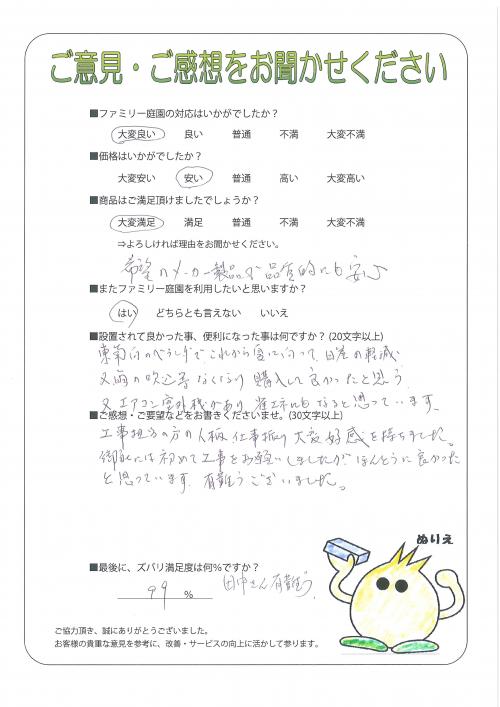 ご意見・ご感想をお聞かせください
■ファミリー庭園の対応はいかがでしたか？
大変良い 良い 普通 不満 大変不満
■価格はいかがでしたか？
大変安い 安い 普通 高い 大変高い
■商品はご満足頂けましたでしょうか？
大変満足 満足 普通 不満 大変不満
⇒よろしければ理由をお聞かせください。
希望のメーカー製品が品質的にも安心
■またファミリー庭園を利用したいと思いますか？
はい どちらとも言えない いいえ
■設置されて良かった事、便利になった事は何ですか？(20文字以上)
東南向のベランダでこれから夏に向って、日差の軽減
又雨の吹込等なくなり購入して良かったと思う
又エアコン室外機があり省エネにもなると思っています。
■ご感想・ご要望などをお書きくださいませ。(30文字以上)
工事担当の方の人柄、仕事振り大変好感を持ちました。
御社には初めて工事をお願いしましたが、ほんとうに良かった
と思っています。有難うございました。
ぬりえ
■最後に、ズバリ満足度は何%ですか？
99 %
田中さん有難う。
ご協力頂き、誠にありがとうございました。
お客様の貴重な意見を参考に、改善・サービスの向上に活かして参ります。